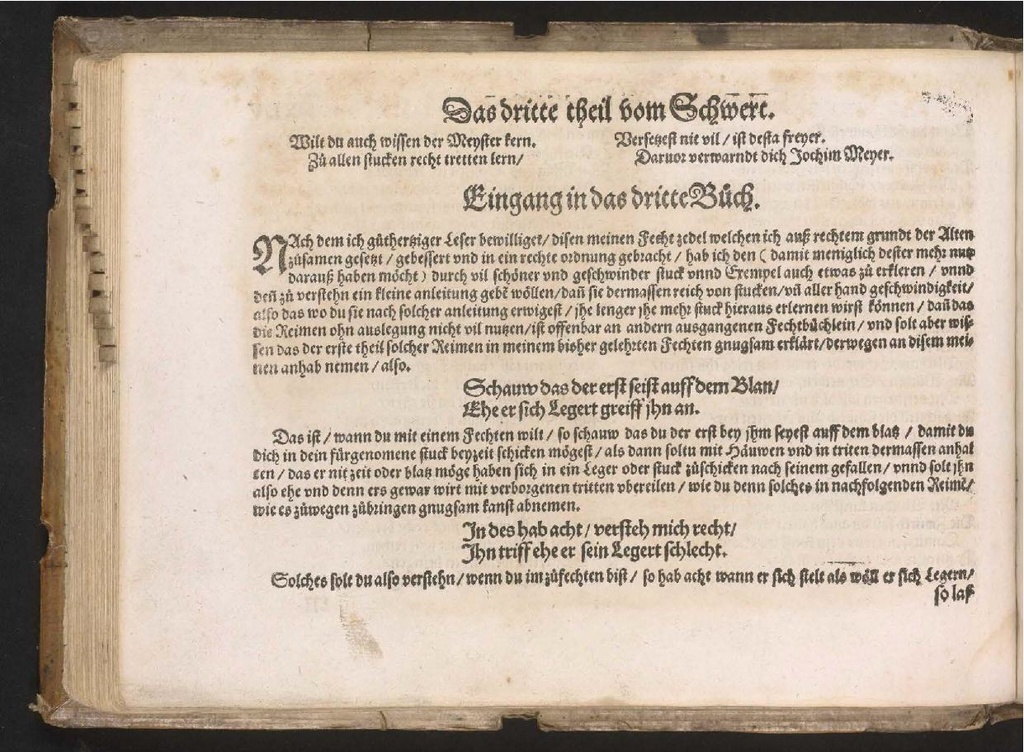 Das dritte theil vom Schwert.
Wilt du auch wissen der Meyster kern.
Zů allen stucken recht tretten lern/
Versetzest nie vil / ist desta freyer.
Daruor verwarndt dich Jochim Meyer.
Eingang in das dritte Bůch.
NAch dem ich gůthertziger Leser bewilliget / disen meinen Fecht zedel welchen ich auß rechtem grundt der Alten
zůsamen gesetzt / gebessert vnd in ein rechte ordnung gebracht / hab ich den ( damit meniglich dester mehr nutz
darauß haben möcht ) durch vil schöner vnd geschwinder stuck vnnd Exempel auch etwas zů erkleren / vnnd
deñ zů verstehn ein kleine anleitung gebē wöllen / dañ sie dermassen reich von stucken / vñ aller hand geschwindigkeit /
also das wo du sie nach solcher anleitung erwigest / jhe lenger jhe mehr stuck hieraus erlernen wirst können / dañ das
die Reimen ohn auslegung nicht vil nutzen / ist offenbar an andern ausgangenen Fechtbüchlein / vnd solt aber wis-
sen das der erste theil solcher Reimen in meinem bisher gelehrten Fechten gnugsam erklärt / derwegen an disem mei-
nen anhab nemen / also.
Schauw das der erst seist auff dem Blan /
Ehe er sich Legert greiff jhn an.
Das ist / wann du mit einem Fechten wilt / so schauw das du der erst bey jhm seyest auff dem blatz / damit du
dich in dein fürgenomene stuck beyzeit schicken mögest / als dann soltu mit Häuwen vnd in triten dermassen anhal
ten / das er nit zeit oder blatz möge haben sich in ein Leger oder stuck zůschicken nach seinem gefallen / vnnd solt jhn
also ehe vnd denn ers gewar wirt mit verborgenen tritten vbereilen / wie du denn solches in nachfolgenden Reimē /
wie es zůwegen zůbringen gnugsam kanst abnemen.
In des hab acht / versteh mich recht /
Ihn triff ehe er sein Legert schlecht.
Solches solt du also verstehn / wenn du im zůfechten bist / so hab acht wann er sich stelt als wöll er sich Legern /
so laß